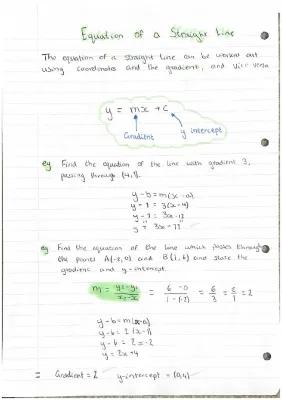 Equation of a Straight Line
The equation of a straight line can be worked out
using coordinates and the gradient, and vice versa
y = mx + c
Gradient
y intercept
eg Find the equation of the line with gradient 3,
passing through (4,1).
y - b = m(x - a)
y - 1 = 3(x - 4)
y - 1 = 3x - 12
y = 3x - 11
eg Find the equation of the line which passes through
the points A(-2,0) and B(1,6) and state the
gradient and y-intercept.
m = y₂-y₁ / x₂-x₁ = 6 - 0 / 1 - (-2) = 6 / 3 = 2 / 1 = 2
y - b = m(x-a)
y - 6 = 2(x-1)
y - 6 = 2x - 2
y = 2x + 4
= Gradient = 2 y-intercept = (0,4)